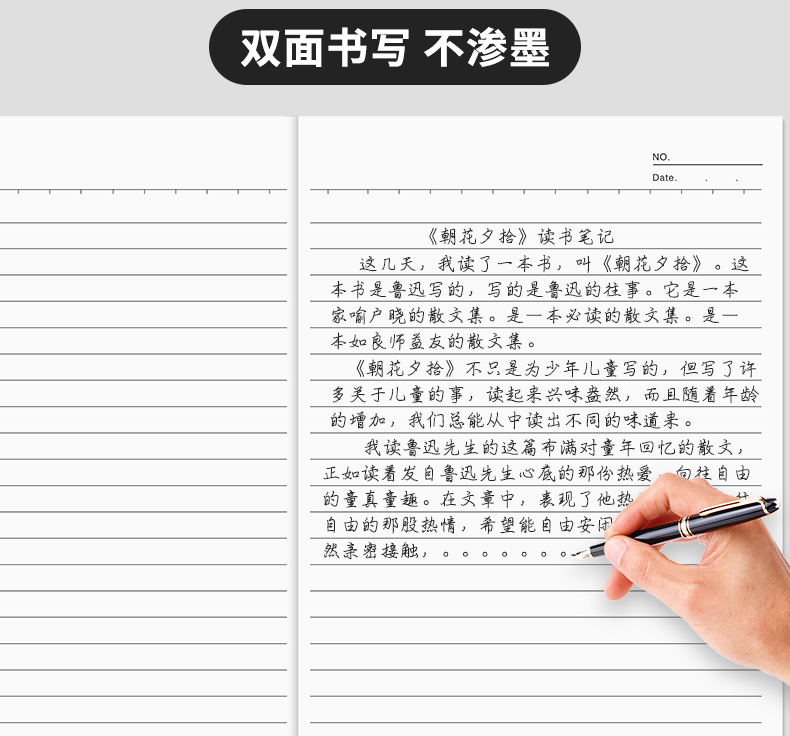 双面书写 不渗墨
NO.
Date. . .
《朝花夕拾》读书笔记
这几天，我读了一本书，叫《朝花夕拾》。这
本书是鲁迅写的，写的是鲁迅的往事。它是一本
家喻户晓的散文集。是一本必读的散文集。是一
本如良师益友的散文集。
《朝花夕拾》不只是为少年儿童写的，但写了许
多关于儿童的事，读起来兴味盎然，而且随着年龄
的增加，我们总能从中读出不同的味道来。
我读鲁迅先生的这篇布满对童年回忆的散文，
正如读着发自鲁迅先生心底的那份热爱，向往自由
的童真童趣。在文章中，表现了他热
自由的那股热情，希望能自由安闲
然亲密接触，。。。。。。。